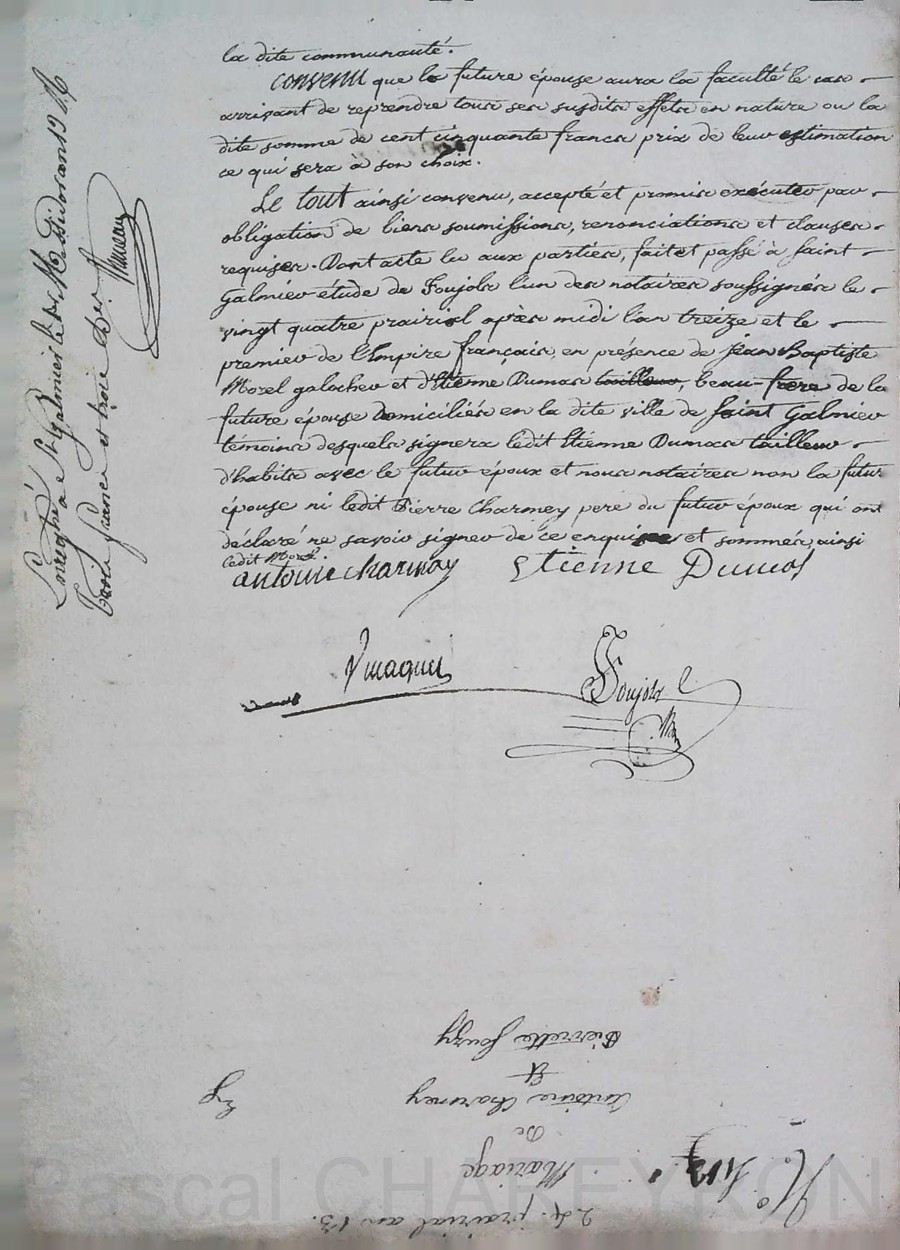 la dite communauté.
Convenu que la future épouse aura la faculté le cas
arrivant de reprendre tous ses susdits effets en nature ou la
dite somme de cent cinquante francs prix de leur estimation
ce qui sera à son choix.
Le tout ainsi convenu, accepté et promis exécuter par
obligation de biens soumissions, renonciations et clauses
requises. Dont acte lu aux parties, fait et passé à Saint
Galmier étude de Foujols l'un des notaires soussignés le
vingt quatre prairial après midi l'an treize et le
premier de l'Empire français, en présence de Jean Baptiste
Morel galocher et d'Etienne Dumas tailleur, beau-frere de la
future épouse domiciliés en la dite ville de Saint Galmier
témoins desquels signera ledit Etienne Dumas tailleur
d'habits avec le futur époux et nous notaires non la futur
épouse ni ledit Pierre Charmey pere du futur époux qui ont
déclaré ne savoir signer de ce enquis et sommés, ainsi
ledit Morel.
antoine charmay Etienne Dumas
Foujols
Enregistré à St Galmier le Messidor an 13
trois francs et trois
24. prairial an 13.
Mariage
De
Antoine Charmey
Et
Pierrette
No